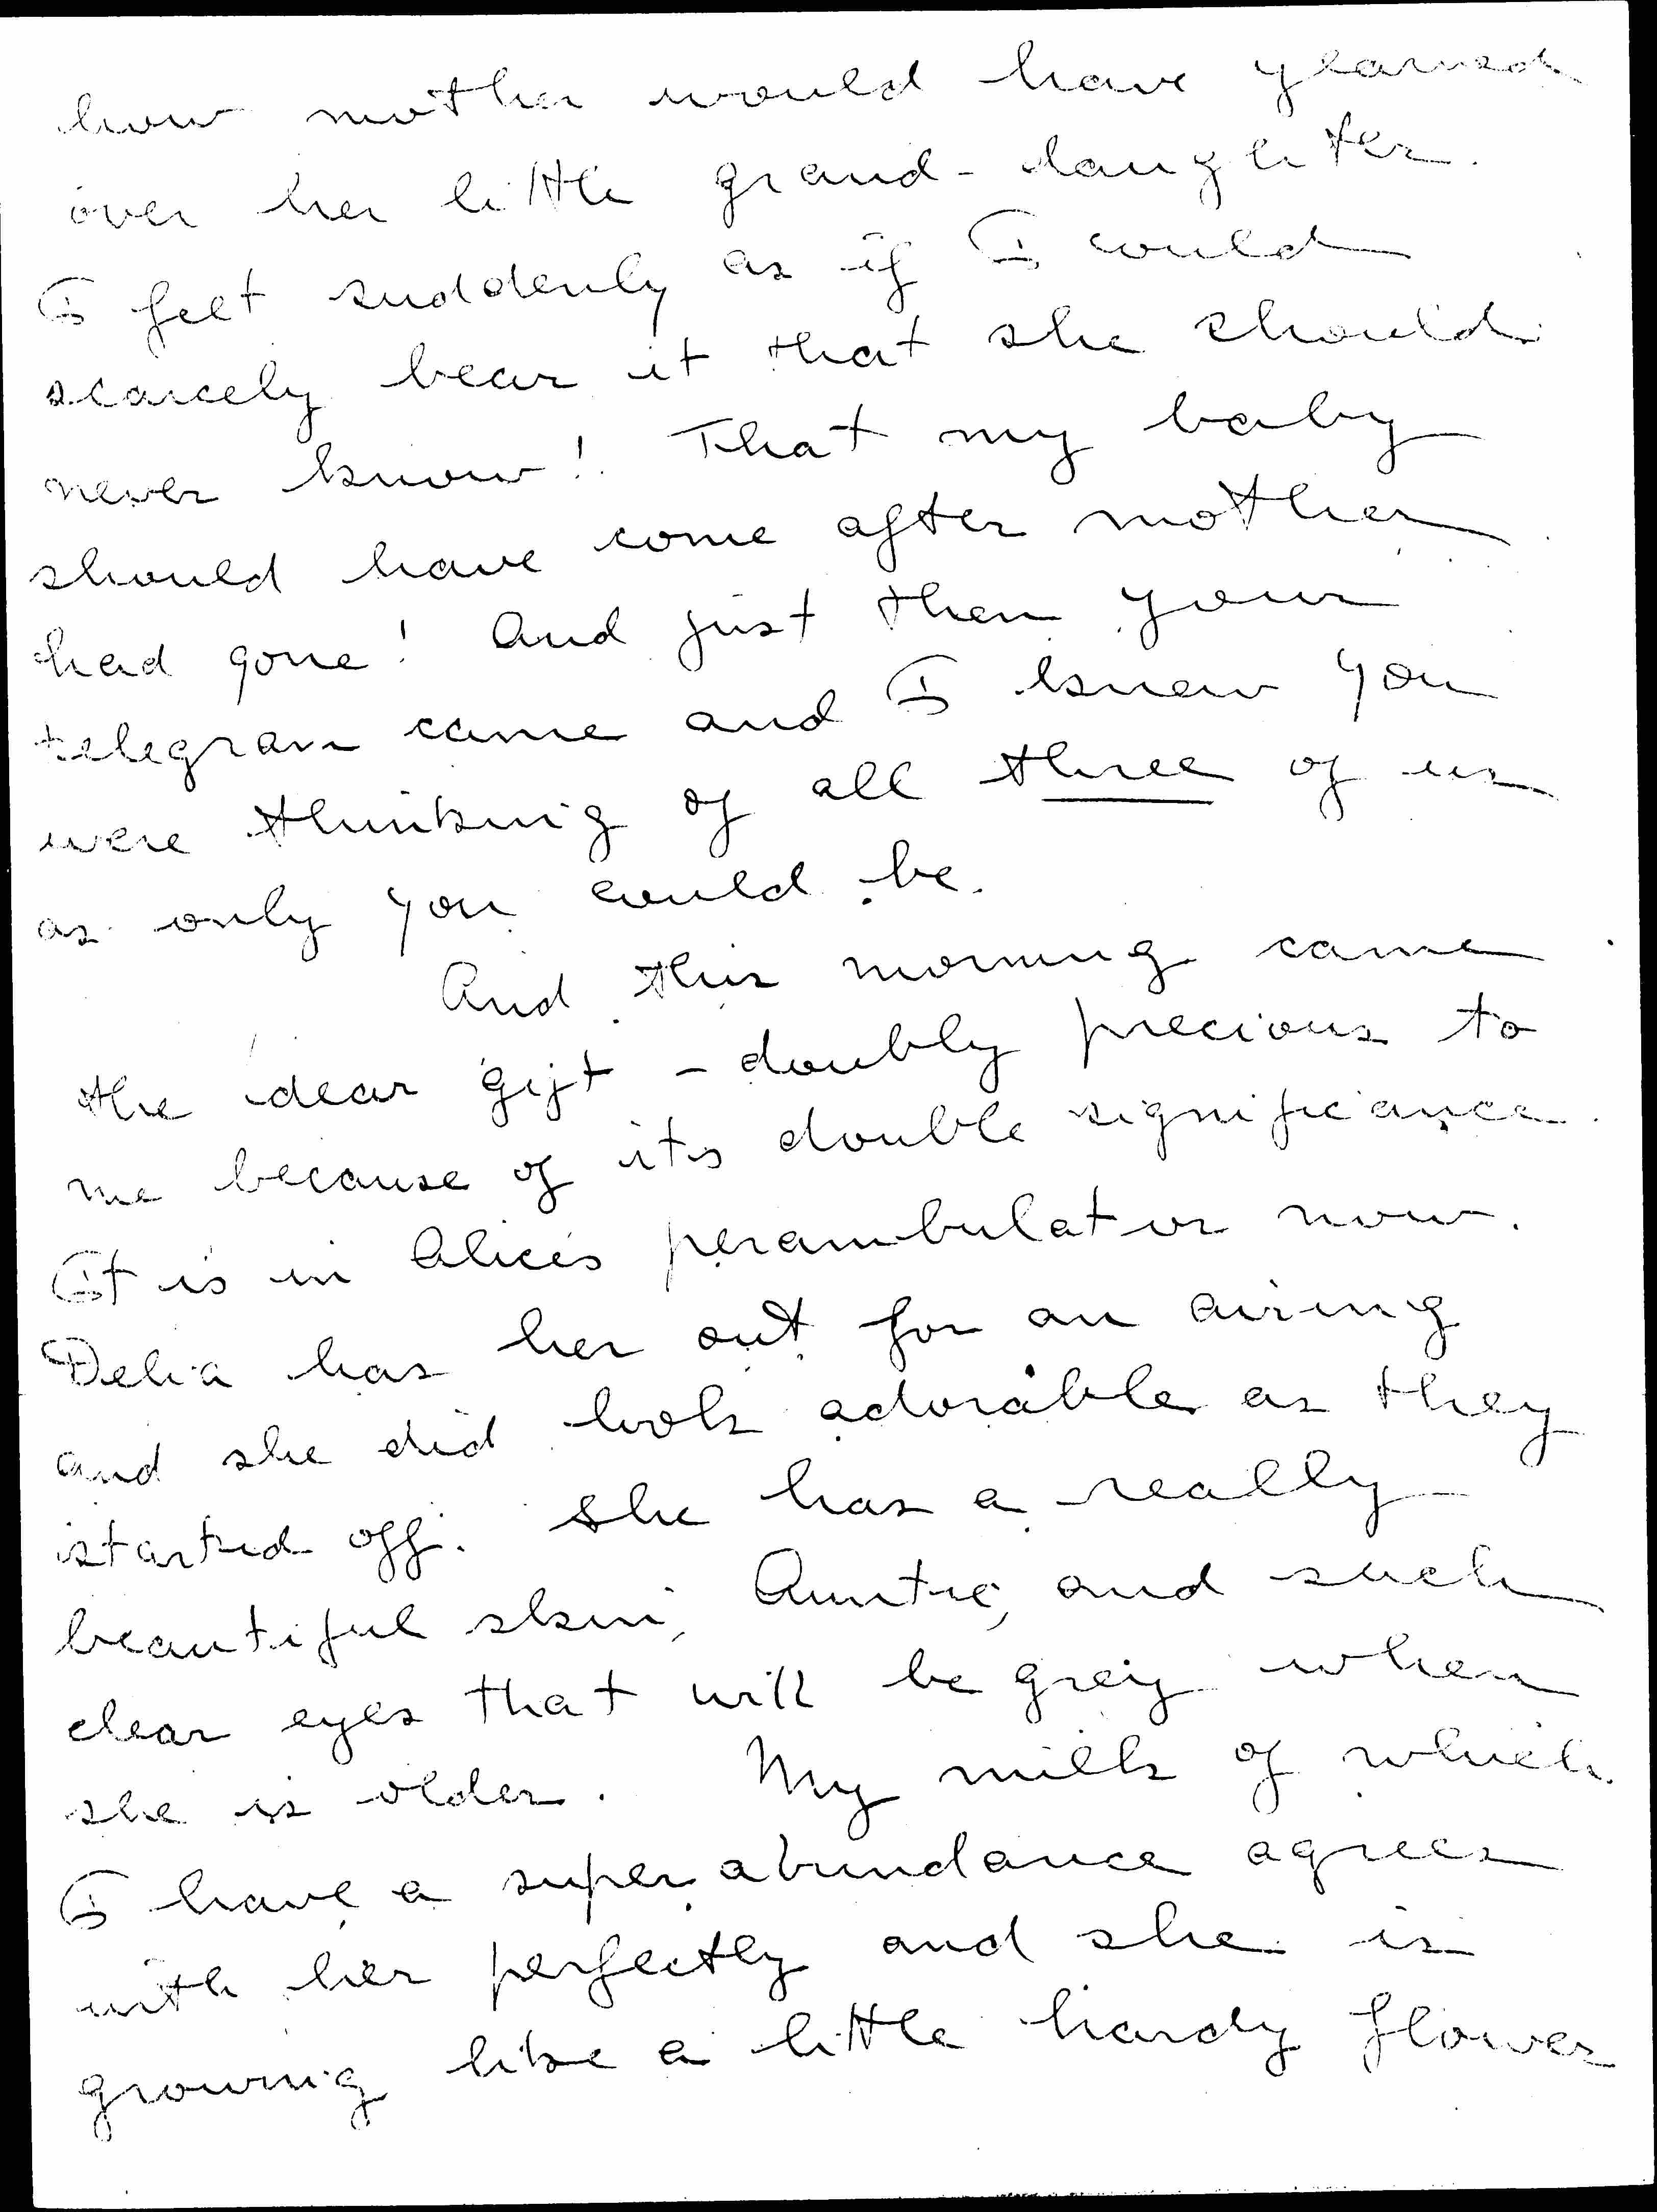 how mother would have yearned
over her little grand-daughter.
I felt suddenly as if I could
scarcely bear it that she should
never know! That my baby
should have come after mother
had gone! And just then your
telegram came and I knew you
were thinking of all three of us
as only you could be.
And this morning came
the dear gift - doubly precious to
me because of its double significance.
It is in Alice's perambulator now.
Delia has her out for an airing
and she did look adorable as they
started off. She has a really
beautiful skin, Auntie, and such
clear eyes that will be grey when
she is older. My milk of which
I have a superabundance agrees
with her perfectly and she is
growing like a little hardy flower